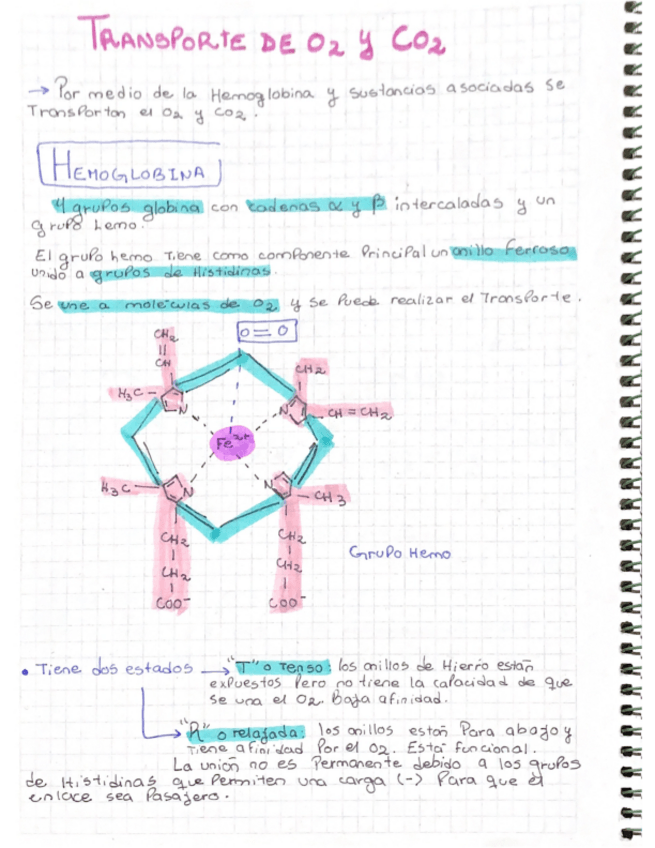 TRANSPORTE DE O2 y CO2
→ Por medio de la Hemoglobina y sustancias asociadas se
Transportan el O2 y CO2.
HEMOGLOBINA
4 grupos globina con cadenas α y β intercaladas y un
grupo hemo.
El grupo hemo tiene como componente Principal un anillo Ferroso
unido a grupos de Histidinas.
Se une a moléculas de O2 y se Puede realizar el Transporte.
O=O
CH2
||
CH
CH2
H3C-
N
N
CH=CH2
Fe2+
H3C-
N
N
-CH3
CH2
CH2
CH2
CH2
COO-
COO-
Grupo Hemo
• Tiene dos estados → "T" o Tenso: los anillos de Hierro están
expuestos Pero no tiene la capacidad de que
se una el O2. Baja afinidad.
"R" o relajada: los anillos están Para abajo y
Tiene afinidad Por el O2. Está funcional.
La unión no es Permanente debido a los grupos
de Histidinas que Permiten una carga (-) Para que el
enlace sea Pasajero.